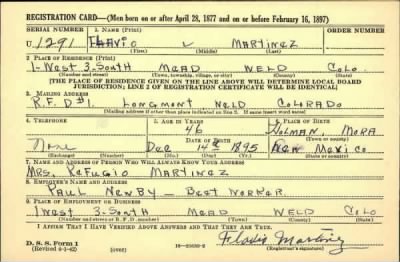 REGISTRATION CARD—(Men born on or after April 28, 1877 and on or before February 16, 1897)
SERIAL NUMBER 1. NAME (Print) ORDER NUMBER
U 1291 FLAVIO V MARTINEZ
(First) (Middle) (Last)
2. PLACE OF RESIDENCE (Print)
1-West 3-South MEAD WELD COLO.
(Number and street) (Town, township, village, or city) (County) (State)
[THE PLACE OF RESIDENCE GIVEN ON THE LINE ABOVE WILL DETERMINE LOCAL BOARD
JURISDICTION; LINE 2 OF REGISTRATION CERTIFICATE WILL BE IDENTICAL]
3. MAILING ADDRESS
R.F.D #1. LONGMONT WELD COLORADO
[Mailing address if other than place indicated on line 2. If same insert word same]
4. TELEPHONE 5. AGE IN YEARS 6. PLACE OF BIRTH
46 HOLMAN, MORA
DATE OF BIRTH
None Dec 14th 1895 New Mexico
(Exchange) (Number) (Mo.) (Day) (Yr.) (State or country)
7. NAME AND ADDRESS OF PERSON WHO WILL ALWAYS KNOW YOUR ADDRESS
MRS. REFUGIO MARTINEZ
8. EMPLOYER'S NAME AND ADDRESS
PAUL NEWBY - BEET WORKER
9. PLACE OF EMPLOYMENT OR BUSINESS
1 West 3-South MEAD WELD COLO
(Number and street or R. F. D. number) (Town) (County) (State)
I AFFIRM THAT I HAVE VERIFIED ABOVE ANSWERS AND THAT THEY ARE TRUE.
D. S. S. Form 1
(Revised 4-1-42) (over) Flavio Martinez
(Registrant's signature)